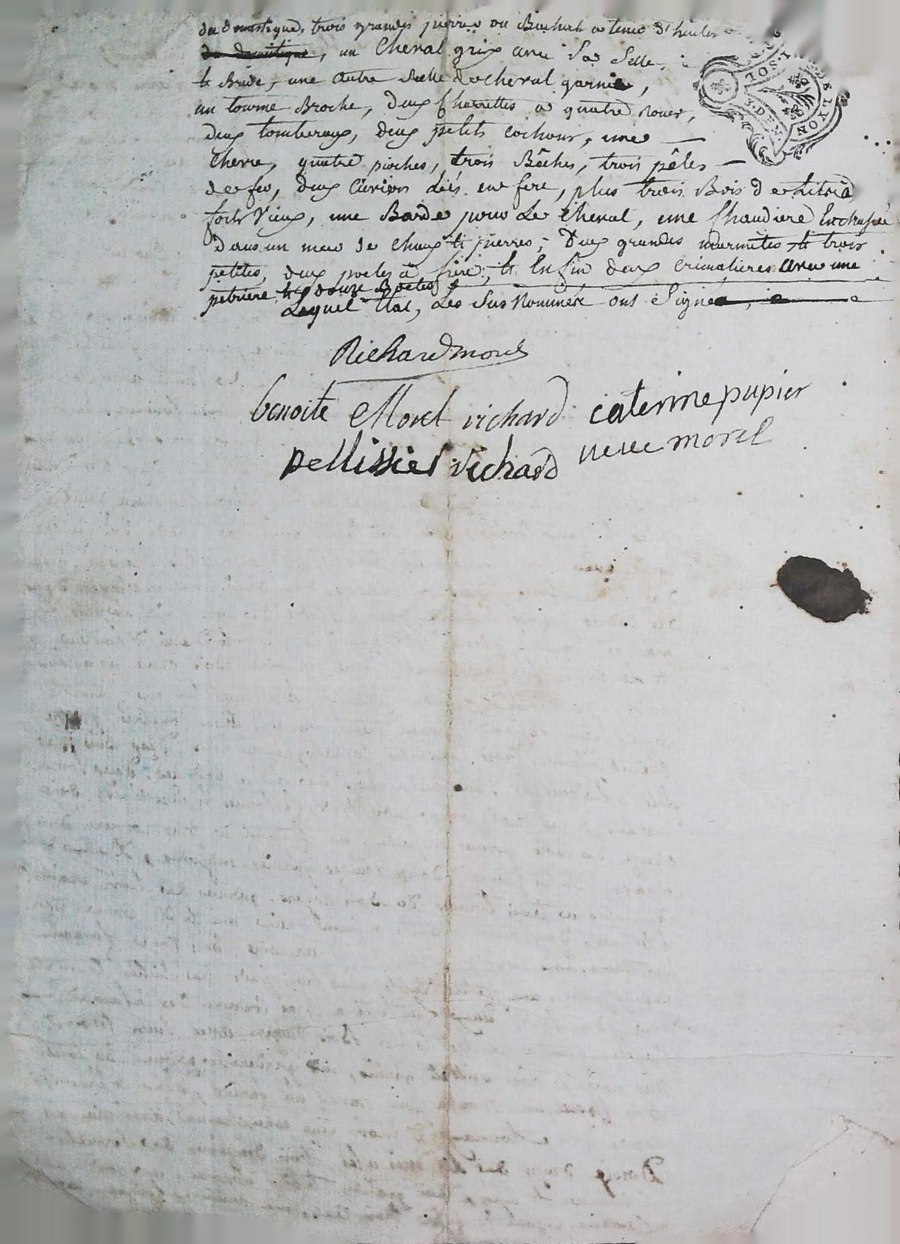 du domestique, trois grandes pierres ou Bachat a tenir d'huile
du domestique, un Cheval gris avec Sa Selle,
et Bride, une autre Selle de cheval garnie,
un tourne Broche, deux Charrettes a quatre Roues,
deux tombereaux, deux petits cochons, une
chevre, quatre pioches, trois Bêches, trois pêles
de feu, deux liés en fere, plus trois Bois de
forts Vieux, une Barde pour Le cheval, une Chaudiere Enchassée
Dans un meur de chaux et pierres; Deux grandes marmites et trois
petites, deux poeles a frire; et Enfin deux crimalieres avec une
petriere et douze
Lequel Etat, Les Sus Nommés ont Signé
Richard morel
benoite Morel richard caterine pupier
pellissier richard veuve morel
SOL
LYON